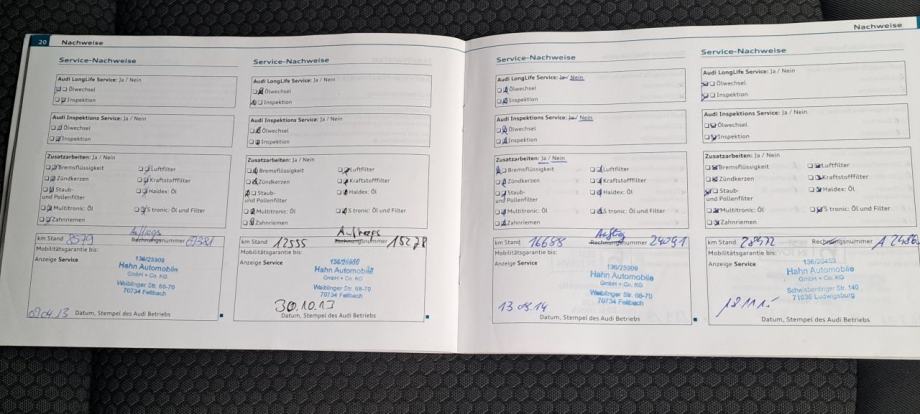 20 Nachweise
Service-Nachweise
Audi LongLife Service: Ja / Nein
Ölwechsel
Inspektion
Audi Inspektions Service: Ja / Nein
Ölwechsel
Inspektion
Zusatzarbeiten: Ja / Nein
Bremsflüssigkeit
Luftfilter
Zündkerzen
Kraftstofffilter
Staub-
und Pollenfilter
Haldex: Öl
Multitronic: Öl
S tronic: Öl und Filter
Zahnriemen
Auftrags
km Stand 8579 Rechnungsnummer
Mobilitätsgarantie bis:
Anzeige Service
136/25909
Hahn Automobile
GmbH + Co. KG
Weiblinger Str. 68-70
70734 Fellbach
Datum, Stempel des Audi Betriebs
Service-Nachweise
Audi LongLife Service: Ja / Nein
Ölwechsel
Inspektion
Audi Inspektions Service: Ja / Nein
Ölwechsel
Inspektion
Zusatzarbeiten: Ja / Nein
Bremsflüssigkeit
Luftfilter
Zündkerzen
Kraftstofffilter
Staub-
und Pollenfilter
Haldex: Öl
Multitronic: Öl
S tronic: Öl und Filter
Zahnriemen
Auftrags
km Stand 12535 Rechnungsnummer 15278
Mobilitätsgarantie bis:
Anzeige Service
136/25909
Hahn Automobile
GmbH + Co. KG
Weiblinger Str. 68-70
70734 Fellbach
30.10.13
Datum, Stempel des Audi Betriebs
Service-Nachweise
Audi LongLife Service: Ja / Nein
Ölwechsel
Inspektion
Audi Inspektions Service: Ja / Nein
Ölwechsel
Inspektion
Zusatzarbeiten: Ja / Nein
Bremsflüssigkeit
Luftfilter
Zündkerzen
Kraftstofffilter
Staub-
und Pollenfilter
Haldex: Öl
Multitronic: Öl
S tronic: Öl und Filter
Zahnriemen
Auftrag
km Stand 16688 Rechnungsnummer 24091
Mobilitätsgarantie bis:
Anzeige Service
136/25909
Hahn Automobile
GmbH + Co. KG
Weiblinger Str. 68-70
70734 Fellbach
Datum, Stempel des Audi Betriebs
Nachweise
Service-Nachweise
Audi LongLife Service: Ja / Nein
Ölwechsel
Inspektion
Audi Inspektions Service: Ja / Nein
Ölwechsel
Inspektion
Zusatzarbeiten: Ja / Nein
Bremsflüssigkeit
Luftfilter
Zündkerzen
Kraftstofffilter
Staub-
und Pollenfilter
Haldex: Öl
Multitronic: Öl
S tronic: Öl und Filter
Zahnriemen
km Stand Rechnungsnummer
Mobilitätsgarantie bis:
Anzeige Service
Hahn Automobile
GmbH + Co. KG
Schwieberdinger Str. 140
71636 Ludwigsburg
Datum, Stempel des Audi Betriebs